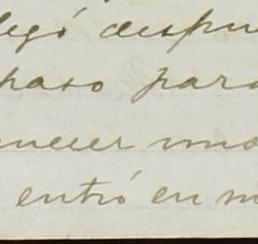 legó despu
paso para
necer uno
entró en m